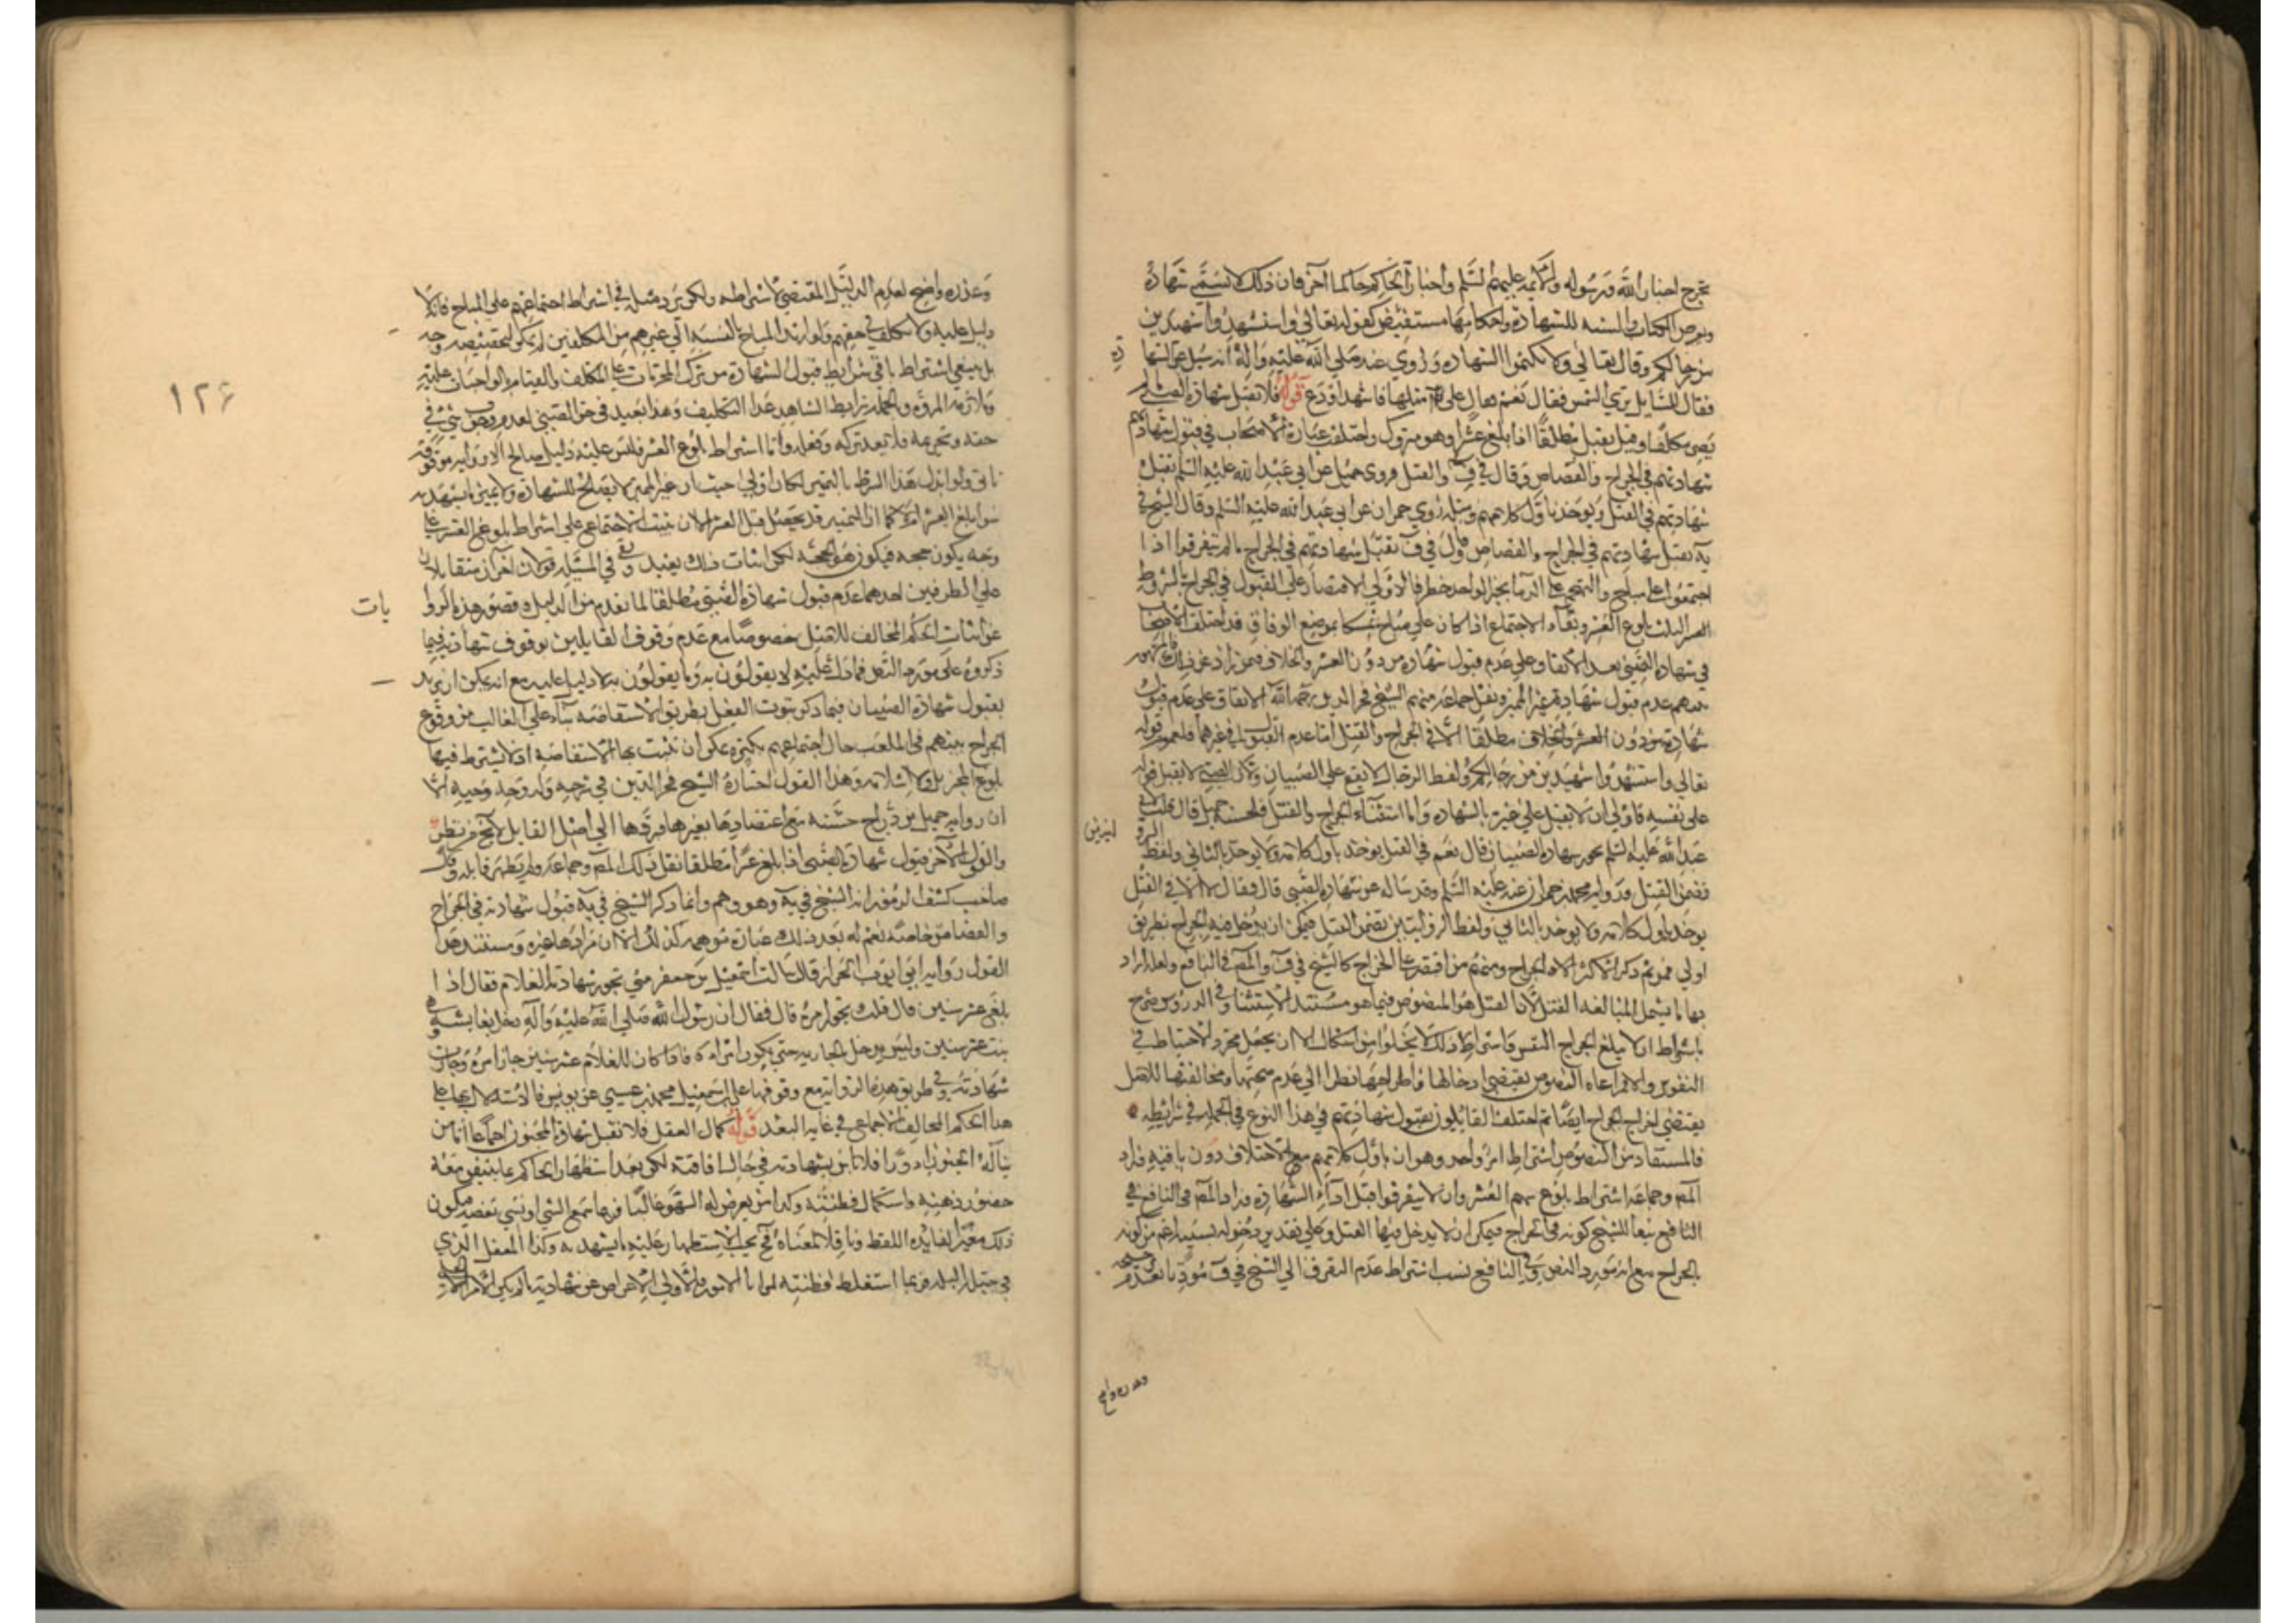 يخرج اخبار الله ورسوله والأئمة عليهم السلم واخبار الحاكم حاكما آخر فان ذلك لا يسمى شهادة
ونصوص الكتاب والسنة للشهادة واحكامها مستفيض كقوله تعالى واستشهدوا شهيدين
من رجالكم وقال تعالى ولا تكتموا الشهادة وروي عنه صلى الله عليه وآله انه سئل عن الشها
دة
فقال للسايل ترى الشمس فقال نعم فقال على مثلها فاشهد او دع قوله فلا تقبل شهادة الصبي ما لم
يصر مكلفا وقيل يقبل مطلقا اذا بلغ عشرا وهو متروك واختلف عبارة الاصحاب في قبول شهادتهم
شهادتهم في الجراح والقصاص وقال في ف والقتل فروى جميل عن ابي عبد الله عليه السلم تقبل
شهادتهم في القتل ويوخذ باول كلامهم ومثله روي حمران عن ابي عبد الله عليه السلم وقال الشيخ في
يه تقبل شهادتهم في الجراح والقصاص وقال في ف تقبل شهادتهم في الجراح ما لم يتفرقوا اذا
اجتمعوا على مباح والتهجم على الدما بخبر الواحد خطر فالاولى الاقتصار على القبول في الجراح بالشروط
الثلث بلوغ العشر وبقاء الاجتماع اذا كان على مباح تمسكا بموضع الوفاق قد اختلف الاصحاب
في شهادة الصبي بعد الاتفاق على عدم قبول شهادة من دون العشر والخلاف فيمن زاد عن ذلك فالمشهور
بينهم عدم قبول شهادة غير المميز ونقل جماعة منهم الشيخ فخر الدين رحمه الله الاتفاق على عدم قبول
شهادة من دون العشر والخلاف مطلقا الا في الجراح والقتل اما عدم القبول في غيرهما فلعموم قوله
تعالى واستشهدوا شهيدين من رجالكم ولفظ الرجال لا يقع على الصبيان ولان الصبي لا يقبل قوله
على نفسه فاولى ان لا يقبل على غيره بالشهادة واما استثناء الجراح والقتل فلحسنة جميل قال قلت لابي
عبد الله عليه السلم تجوز شهادة الصبيان قال نعم في القتل يوخذ باول كلامه ولا يوخذ بالثاني ولفظ
فقضى القتل ورواية محمد بن حمران عنه عليه السلم وقد ساله عن شهادة الصبي قال فقال لا الا في القتل
يوخذ باول كلامه ولا يوخذ بالثاني ولفظ الروايتين تضمن القتل فيمكن ان يدخل فيه الجراح بطريق
اولى فمن ثم ذكر الاكثر الجراح ومنهم من اقتصر على الجراح كالشيخ في ف والمص في النافع ولعله اراد
بها ما يشمل البالغة القتل لان القتل هو المنصوص فيما هو مستند الاستثنا وفي الدروس صرح
باشتراط ان لا يبلغ الجراح النفس واشتراط ذلك لا يخلوا من اشكال الا ان يجعل مجرد الاحتياط في
النفوس والا فمراعاه النصوص يقتضي ادخالها واطراحها نظرا الى عدم صحتها ومخالفتها للاصل
يقتضي اخراج الجراح ايضا ثم اختلف القايلون بقبول شهادتهم في هذا النوع في الجملة في شرايطه
فالمستفاد من النصوص اشتراط امر واحد وهو ان باول كلامهم مع الاختلاف دون باقيه فزاد
المص وجماعة اشتراط بلوغهم العشر وان لا يتفرقوا قبل اداء الشهادة وزاد المص في النافع في
النافع تبعا للشيخ كونه في الجراح فيمكن ان لا يدخل فيها القتل وعلى تقدير دخوله نسبه ارغم من كونه
بالجراح مع انه مورد النص وفي النافع نسب اشتراط عدم التفرق الى الشيخ في ف موذنا بعدم
وعذره واضح
وعذره واضح لعدم الدليل المقتضي لاشتراطه ولكن يرد مثله في اشتراط اجتماعهم على المباح فانه لا
دليل عليه ولا تكليف في حقهم ولو اريد المباح بالنسبة الى غيرهم من المكلفين لم يكن لتخصيصه وجه
بل ينبغي اشتراط باقي شرايط قبول الشهادة من ترك المحرمات على المكلف والقيام بالواجبات عليه
وملازمة المروة وبالجملة شرايط الشاهد عدا التكليف وهذا بعيد في حق الصبي لعدم وجوب شي في
حقه وتحريمه فلا يعد تركه وفعله واما اشتراط بلوغ العشر فليس عليه دليل صالح الا رواية موقوفة
تاتي ولو ابدل هذا الشرط بالتمييز لكان اولى حيث ان غير المميز لا يصلح للشهادة ولا يميز ما يشهد به
سوا بلغ العشر ام لا كما ان التمييز قد يحصل قبل العشر الا ان يثبت الاجتماعي على اشتراط بلوغ العشر على
وجه يكون حجة فيكون هو الحجة لكن اثبات ذلك بعيد وفي المسئلة قولان اخران متقابلان
على الطرفين احدهما عدم قبول شهادة الصبي مطلقا لما تقدم من الدليل وقصور هذه الروا
يات
عن اثبات الحكم المخالف للاصل خصوصا مع عدم وقوف القايلين بوقوف شهادته فيما
ذكروه على مورد النص فما دل عليه لا يقولون به وما يقولون به لا دليل عليه مع انه يمكن ان يريد
بقبول شهادة الصبيان فيما ذكر ثبوت الفعل بطريق الاستفاضة بناء على الغالب من وقوع
الجراح بينهم في الملعب حال اجتماعهم بكثرة يمكن ان تثبت بها الاستفاضة اذ لا يشترط فيها
بلوغ المخبر بل ولا اسلامه وهذا القول اختاره الشيخ فخر الدين في شرحه وله وجه وجيه الا
ان رواية جميل بن دراج حسنة مع اعتضادها بغيرها فردها الى اصل القايل لا يخ من نظر
والقول الآخر قبول شهادة الصبي اذا بلغ عشرا مطلقا نقل ذلك المص وجماعة ولم يظهر قايله وذكر
صاحب كشف الرموز انه الشيخ في يه وهو وهم وانما ذكر الشيخ في يه قبول شهادته في الجراح
والقصاص خاصة نعم له بعد ذلك عبارة موهمة لذلك الا ان مرادها غيره ومستند هذا
القول رواية ابي ايوب الخراز قال سالت اسمعيل بن جعفر متى تجوز شهادة الغلام فقال اذا
بلغ عشر سنين قال قلت يجوز امره قال فقال ان رسول الله صلى الله عليه وآله دخل بعايشة وهي
بنت عشر سنين وليس يدخل بالجارية حتى تكون امراة فاذا كان للغلام عشر سنين جاز امره وجازت
شهادته وفي طريق هذه الرواية مع وقوفها على اسمعيل محمد بن عيسى عن يونس فالاستدلال بها على
هذا الحكم المخالف للاجماع في غاية البعد قوله كمال العقل فلا تقبل شهادة المجنون اجماعا اما من
يناله الجنون ادوارا فلا باس بشهادته في حال افاقته لكن بعد استظهار الحاكم بما يتيقن معه
حضور ذهنه واستكمال فطنته وكذا من يعرض له السهو غالبا فربما سمع الشي وانسي بعضه فيكون
ذلك مغيرا لفايدة اللفظ وناقلا لمعناه فح يجب الاستظهار عليه ما يشهد به وكذا المغفل الذي
في جبلته البله فربما استغلط لفطنته لمزايا الامور والاولى الاعراض عن شهادته ما لم يكن الامر الجلي
١٢٦